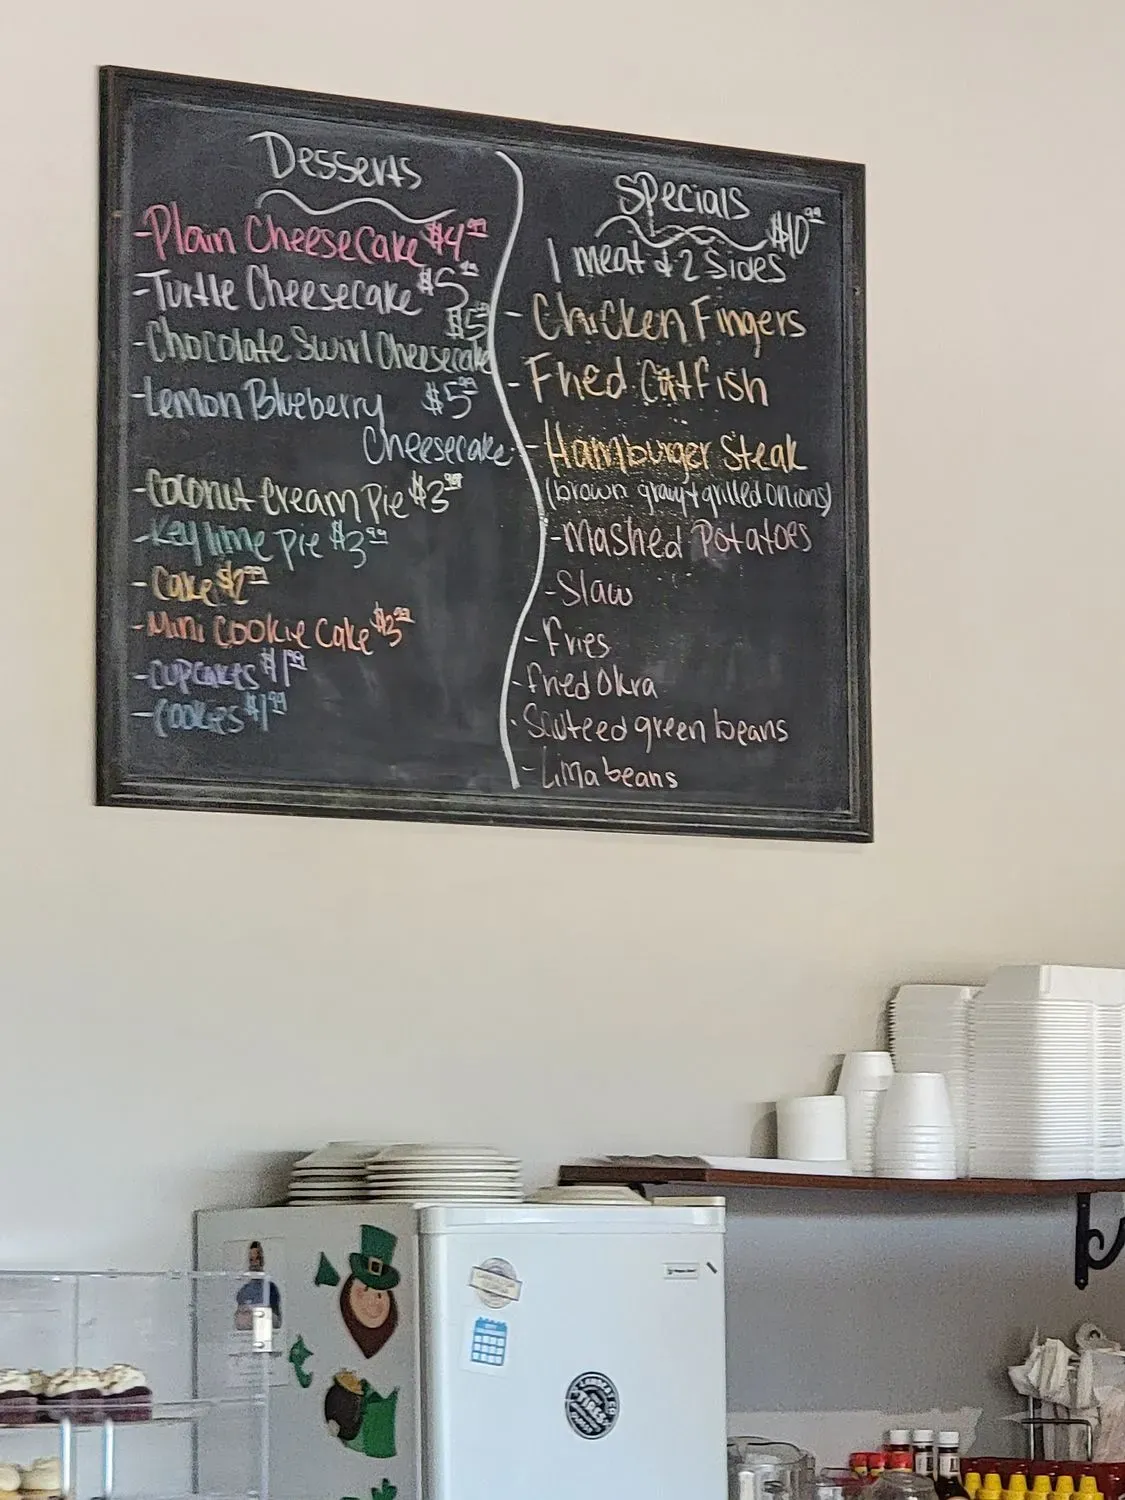 Desserts
-Plain Cheesecake $4.99
-Turtle Cheesecake $5.99
$5
-Chocolate Swirl Cheesecake
-Lemon Blueberry $5.99
Cheesecake
-Coconut Cream Pie $3.99
-Key lime pie $3.99
-Cake $2.99
-Mini Cookie Cake $3.99
-Cupcakes $1.99
-Cookies $1.99
Specials
$10.99
1 meat & 2 Sides
- Chicken Fingers
- Fried Catfish
- Hamburger Steak
(brown gravy + grilled onions)
-Mashed Potatoes
-Slaw
-Fries
-Fried Okra
-Sauteed green beans
-Lima beans